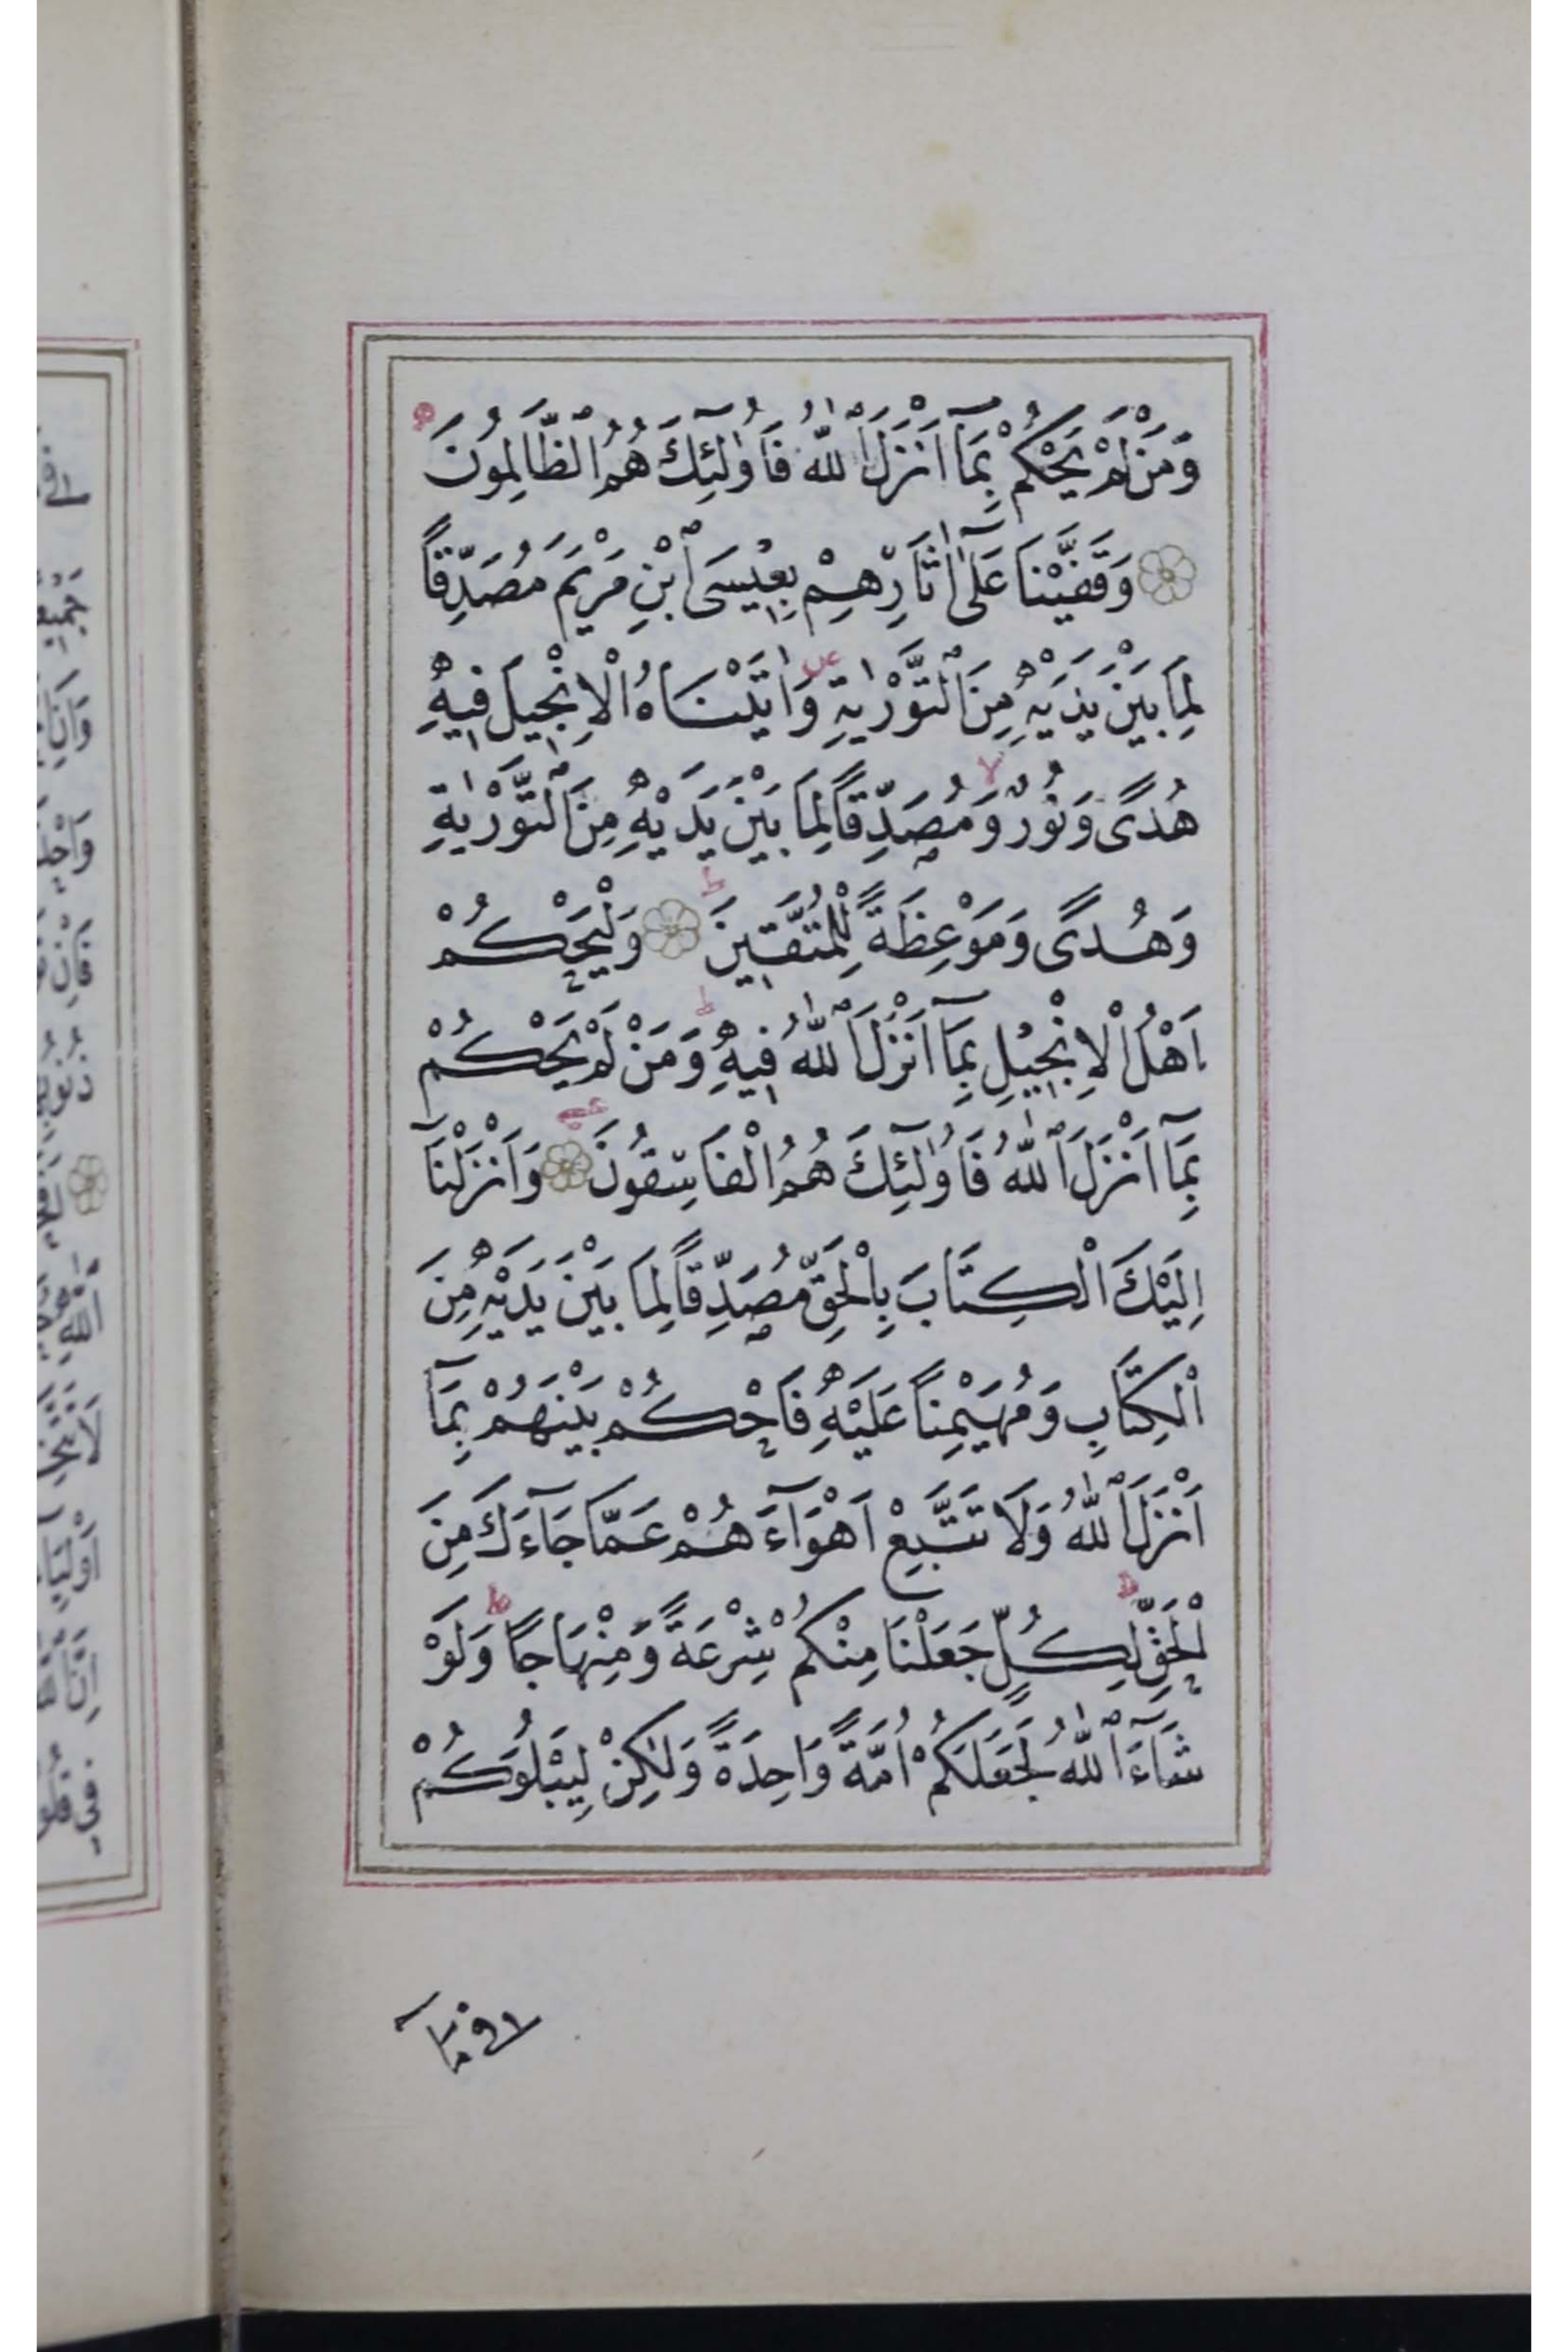 وَمَنْ لَمْ يَحْكُمْ بِمَآ اَنْزَلَ ٱللّٰهُ فَاُولٰٓئِكَ هُمُ ٱلظَّالِمُونَ
وَقَفَّيْنَا عَلٰٓى اٰثَارِهِمْ بِعِيسَى ٱبْنِ مَرْيَمَ مُصَدِّقًا
لِمَا بَيْنَ يَدَيْهِ مِنَ ٱلتَّوْرٰيةِ وَاٰتَيْنَاهُ الْاِنْجِيلَ فِيهِ
هُدًى وَنُورٌ وَمُصَدِّقًا لِمَا بَيْنَ يَدَيْهِ مِنَ ٱلتَّوْرٰيةِ
وَهُدًى وَمَوْعِظَةً لِلْمُتَّقِينَ وَلْيَحْكُمْ
اَهْلُ الْاِنْجِيلِ بِمَآ اَنْزَلَ ٱللّٰهُ فِيهِ وَمَنْ لَمْ يَحْكُمْ
بِمَآ اَنْزَلَ ٱللّٰهُ فَاُولٰٓئِكَ هُمُ الْفَاسِقُونَ وَاَنْزَلْنَآ
اِلَيْكَ الْكِتَابَ بِالْحَقِّ مُصَدِّقًا لِمَا بَيْنَ يَدَيْهِ مِنَ
الْكِتَابِ وَمُهَيْمِنًا عَلَيْهِ فَاحْكُمْ بَيْنَهُمْ بِمَآ
اَنْزَلَ ٱللّٰهُ وَلَا تَتَّبِعْ اَهْوَآءَ هُمْ عَمَّا جَآءَكَ مِنَ
الْحَقِّ لِكُلٍّ جَعَلْنَا مِنْكُمْ شِرْعَةً وَمِنْهَاجًا وَلَوْ
شَآءَ ٱللّٰهُ لَجَعَلَكُمْ اُمَّةً وَاحِدَةً وَلٰكِنْ لِيَبْلُوَكُمْ